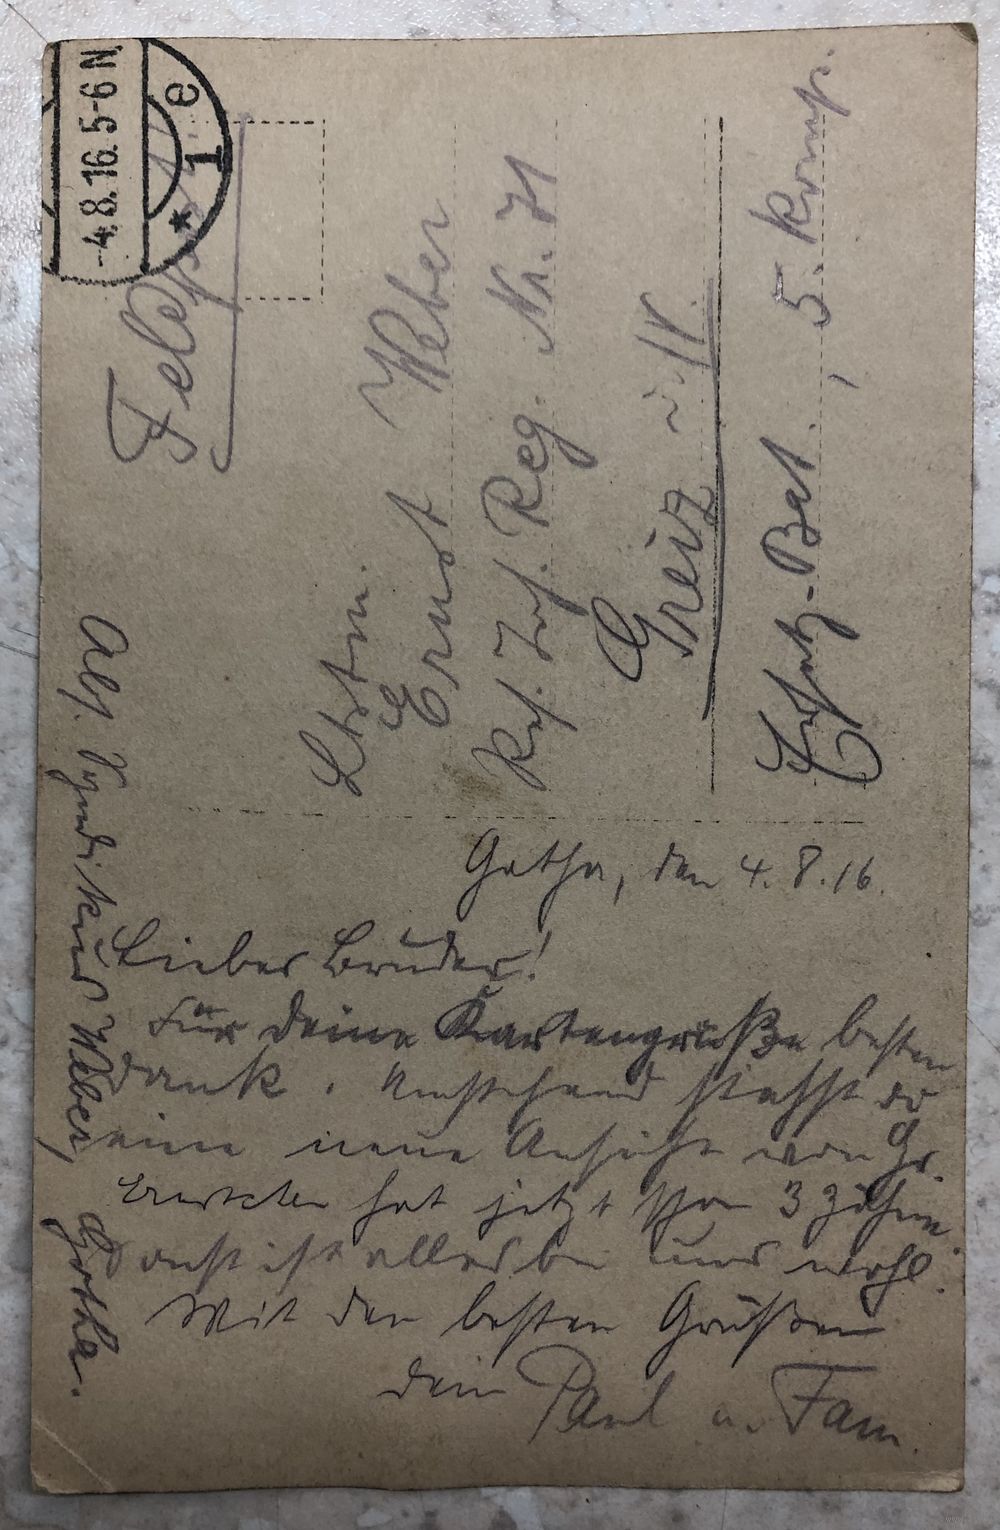 -4.8.16.5-6 N.
* 1 e
Feldpost
Ldstm.
Ernst Weber
Res. Inf. Reg. Nr. 71
Greiz i. /V.
Ersatz-Bat., 5. Komp.
Abs. Syndikus Weber, Gotha.
Gotha, den 4.8.16.
Lieber Bruder!
Für deine Kartengrüße besten
Dank. Umstehend siehst du
eine neue Ansicht von
hat jetzt schon 3 Zähne.
Sonst ist alles bei uns wohl.
Mit den besten Grüßen
dein Paul u. Fam.